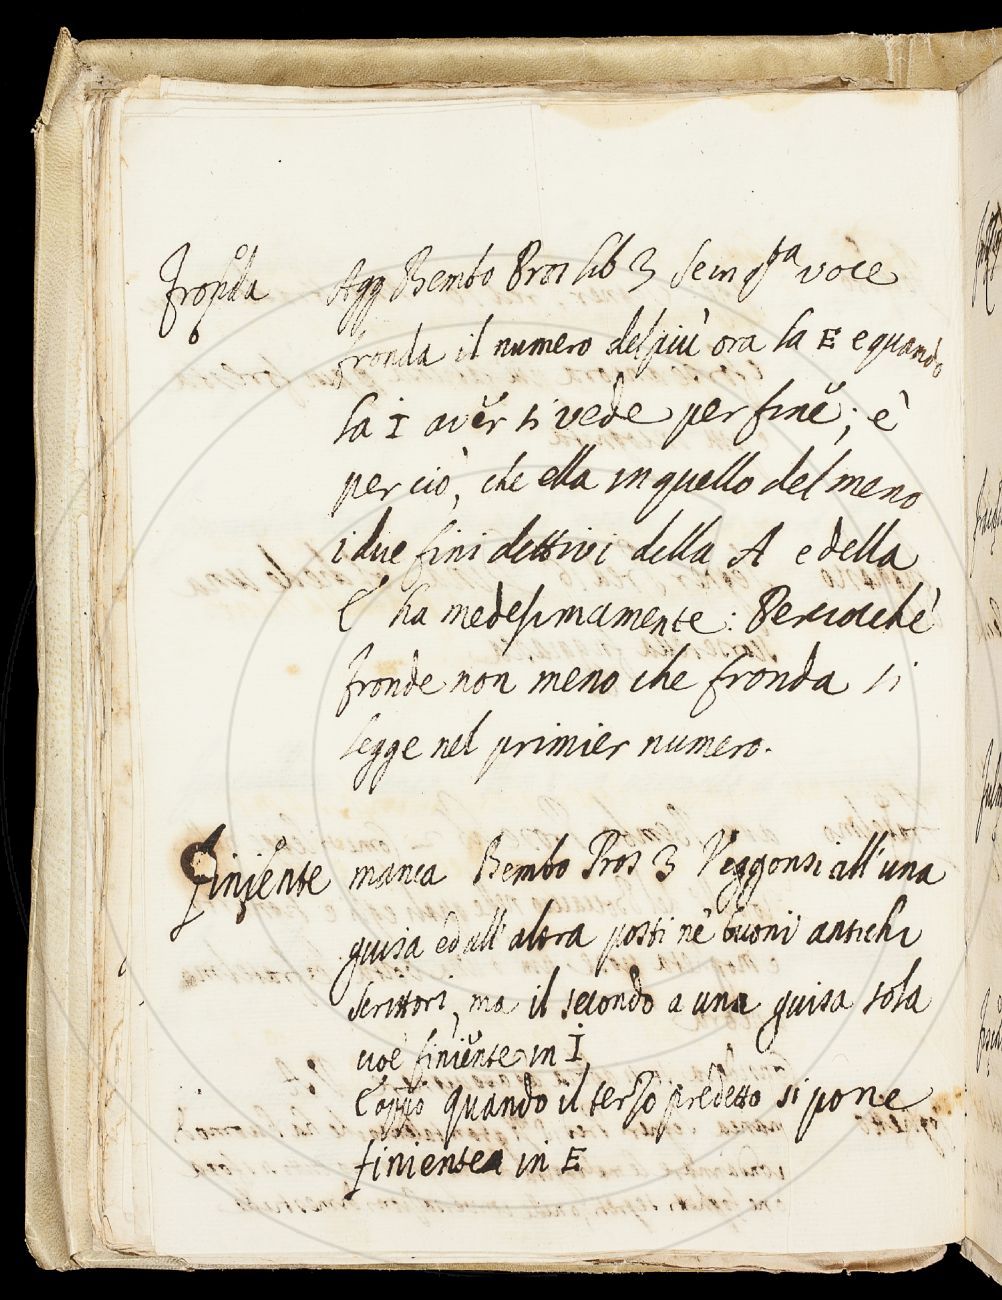 Fronda Agg Bembo Pros lib 3 Se in qsta voce
fronda il numero del più ora la E e quando
la I aver si vede per fine; è
per ciò, che ella in quello del meno
i due fini dettivi della A e della
E ha medesimamente: Perciocchè
fronde non meno che fronda si
legge nel primier numero.
Finiente manca Bembo Pros 3 Veggonsi all'una
guisa ed all'altra posti ne buoni antichi
scrittori, ma il secondo a una guisa sola
cioè finiente in I
E appo quando il terzo predetto si pone
finiente in E